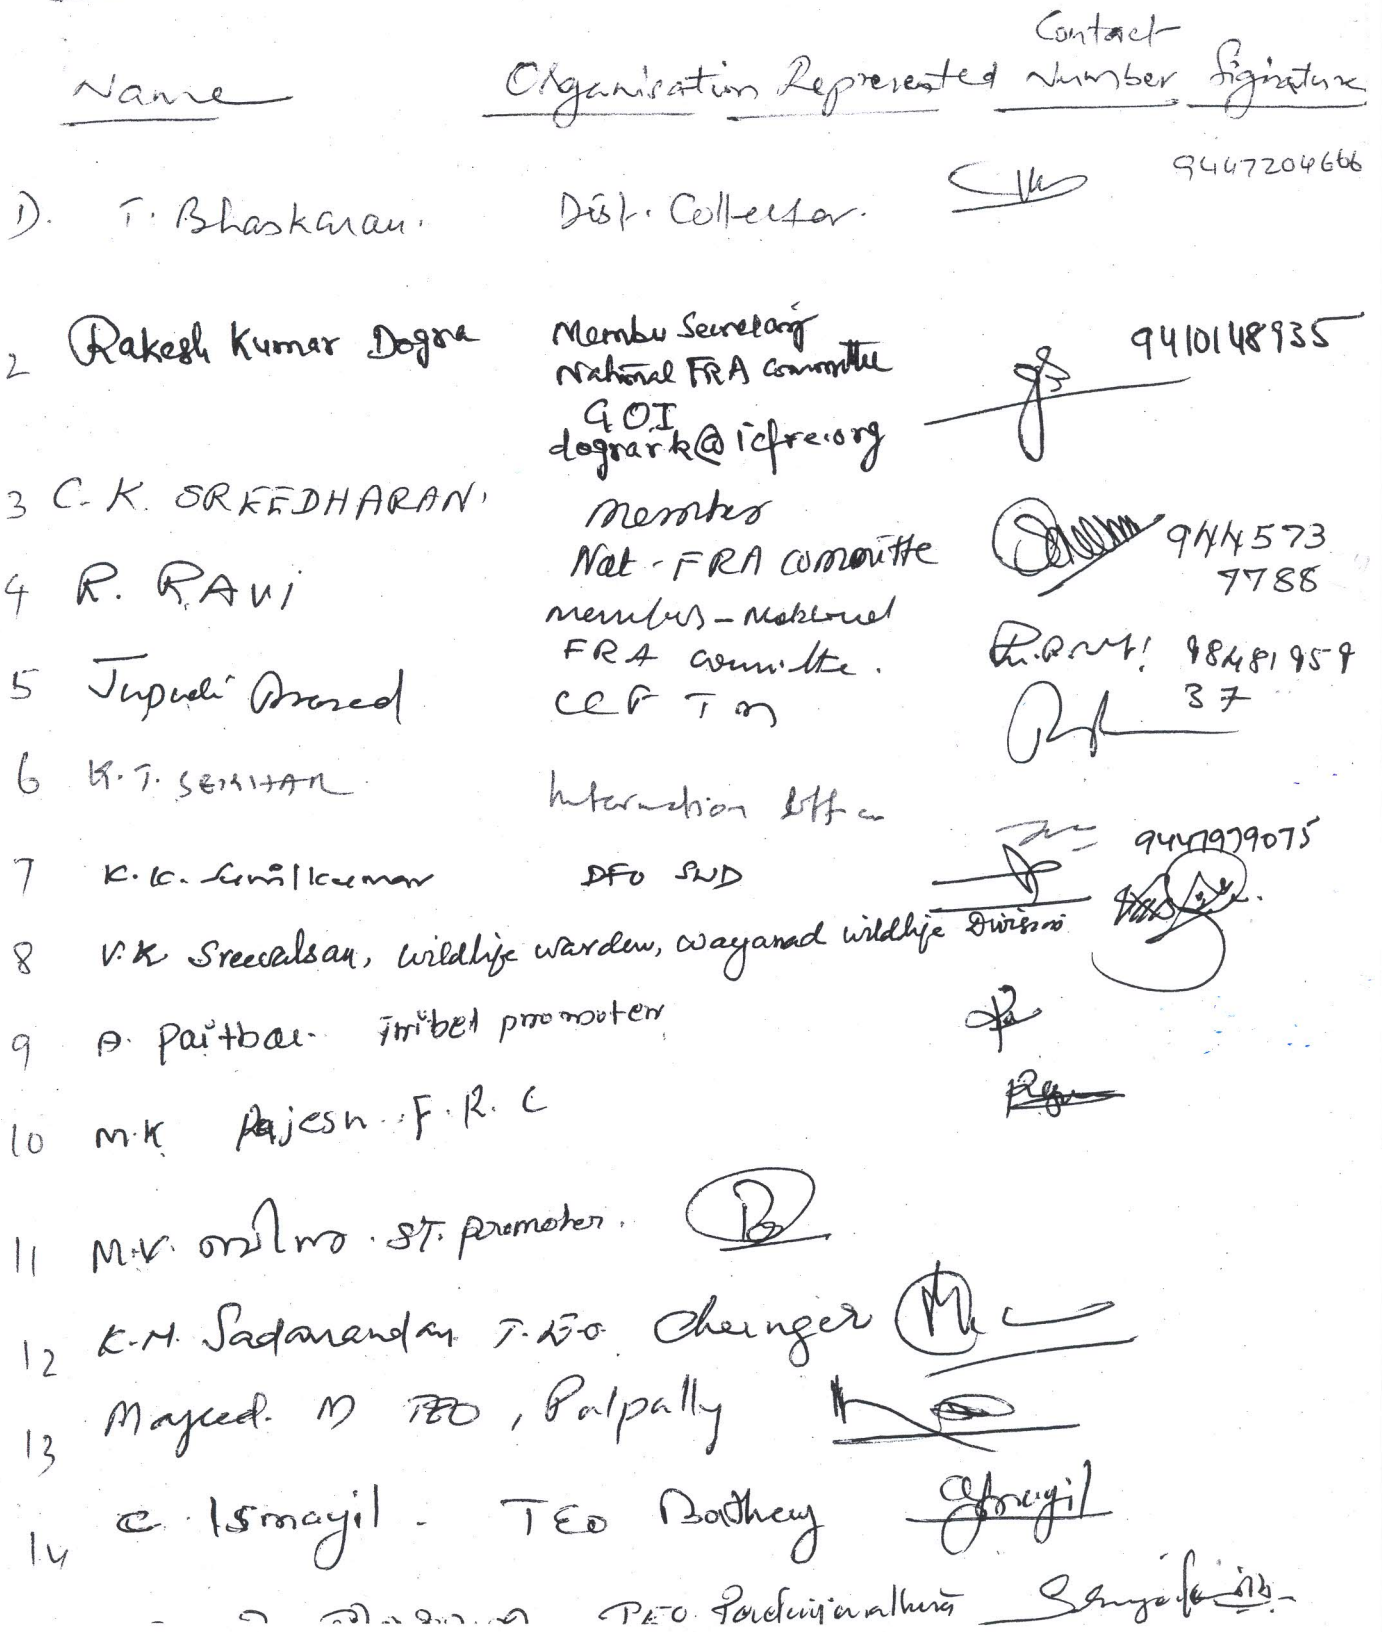 Contact
Name Organisation Represented Number Signature
1). T. Bhaskaran. Dist. Collector. 9447204666
2 Rakesh Kumar Dogra Member Secretary 9410148935
National FRA Committee
GOI
dogrark@icfre.org
3 C. K. SREEDHARAN. Member
Nat - FRA committe 944573
7788
4 R. RAVI Member - National
FRA committe. 98481959
37
5 Jupudi Prasad CCF
6 K. T. SEKHAR Information Officer
9447979075
7 K. K. Sunilkumar DFO SWD
8 V. K Sreevalsan, wildlife warden, wayanad wildlife Division
9 A. Tribel promoter
10 M.K Rajesh. F. R. C
11 M.V. ST. promoter.
12 K. M. Sadanandan T.E.O.
13 Majeed. M TEO, Pulpally
14 C. Ismayil - TEO Bathery
TEO